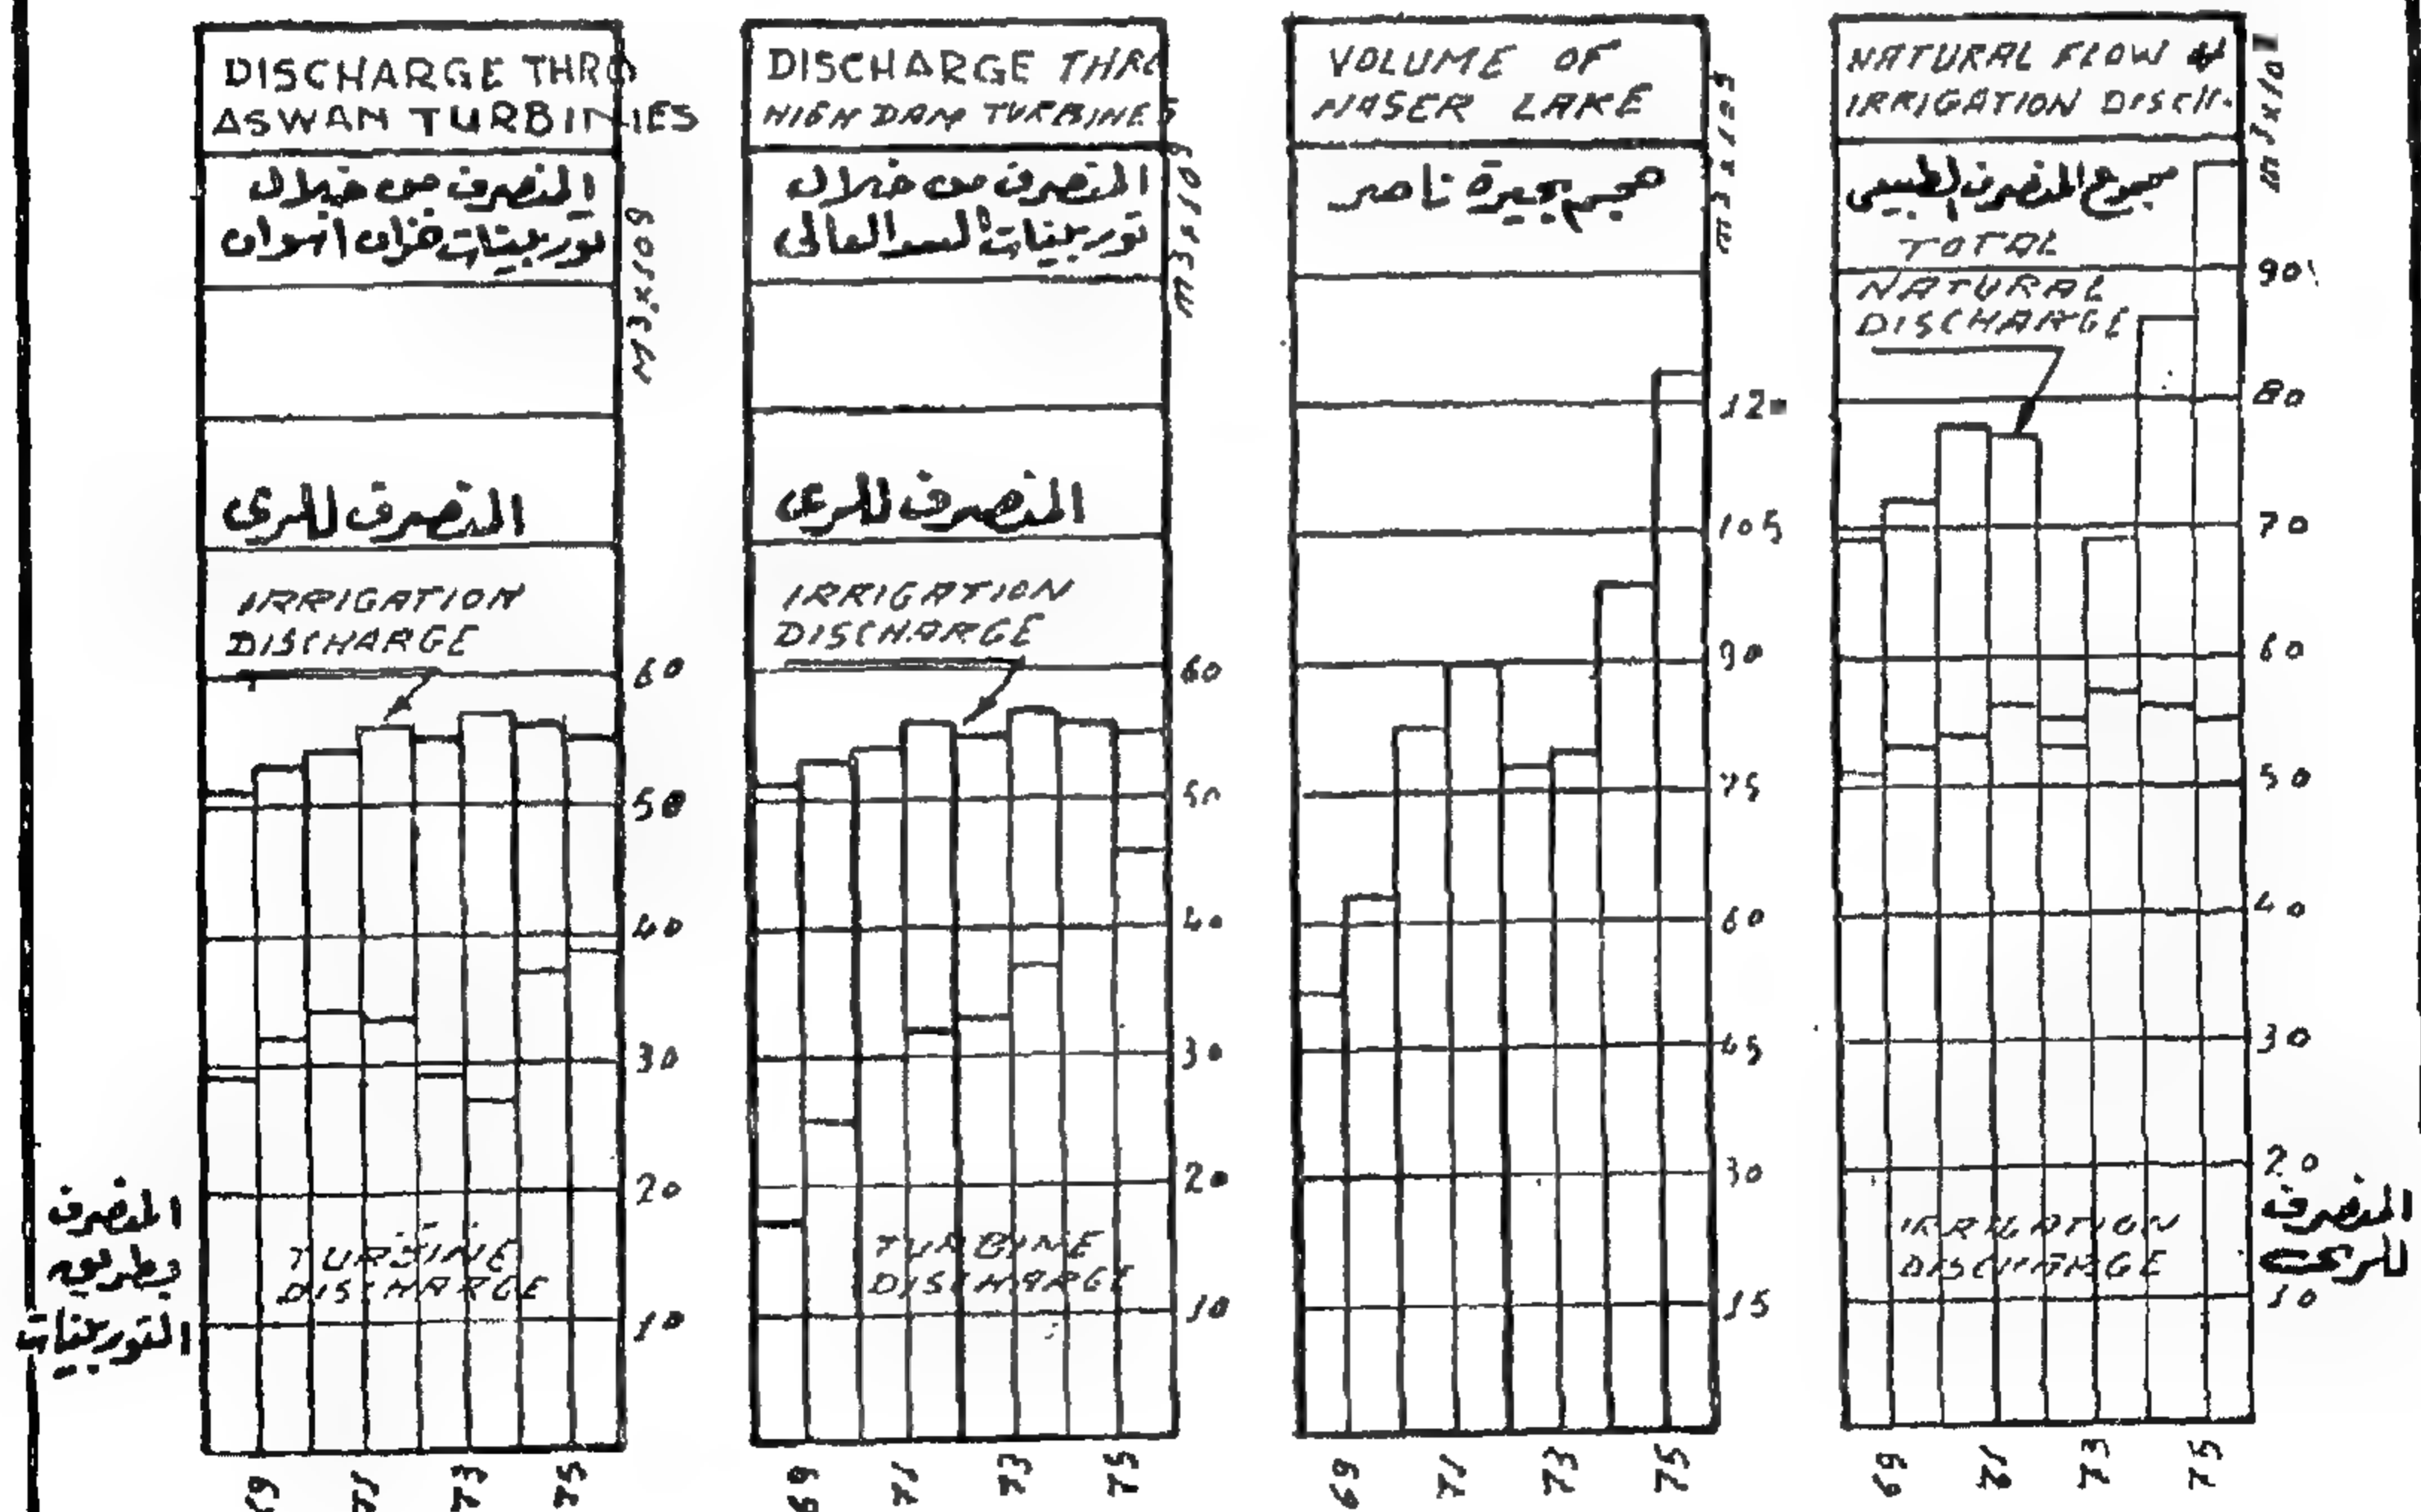 DISCHARGE THRO
ASWAN TURBINES
المنصرف من خلال
توربينات خزان أسوان
M3x109
المنصرف للرى
IRRIGATION
DISCHARGE
60
50
40
30
20
10
TURBINE
DISCHARGE
المنصرف
بطريق
التوربينات
69
71
73
75
DISCHARGE THRO
HIGH DAM TURBINES
المنصرف من خلال
توربينات السد العالى
m3x109
المنصرف للرى
IRRIGATION
DISCHARGE
60
50
40
30
20
10
TURBINE
DISCHARGE
69
71
73
75
VOLUME OF
NASER LAKE
حجم بحيرة ناصر
120
105
90
75
60
45
30
15
69
71
73
75
NATURAL FLOW &
IRRIGATION DISCH.
مجموع المنصرف الطبيعى
TOTAL
NATURAL
DISCHARGE
90
80
70
60
50
40
30
20
10
IRRIGATION
DISCHARGE
المنصرف
للرى
69
71
73
75